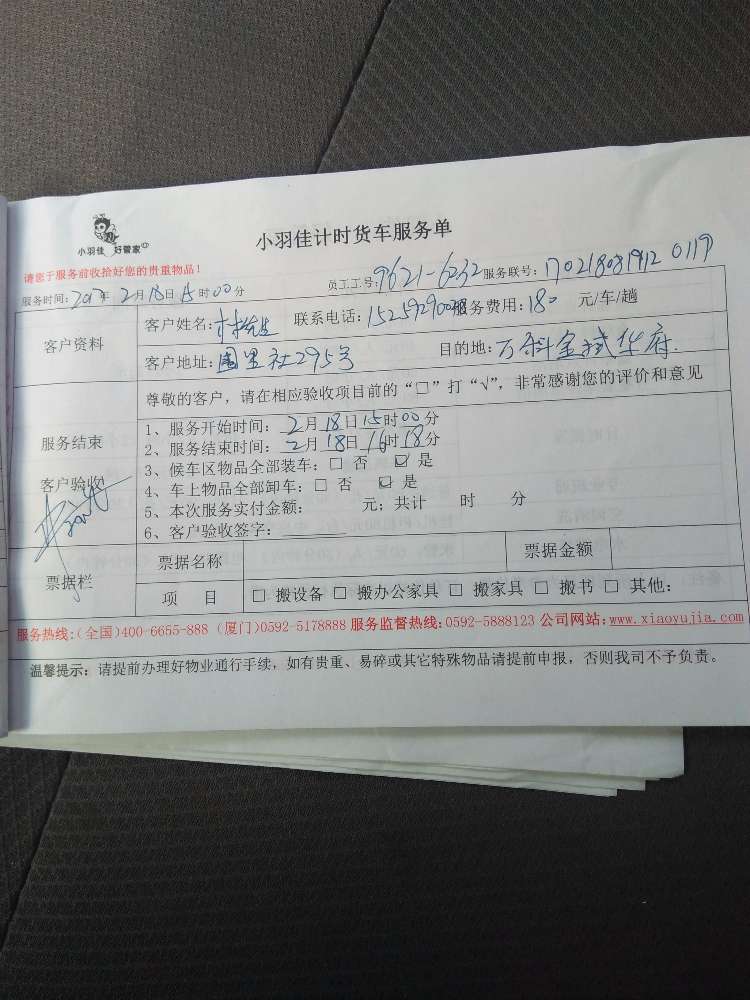 小羽佳 好管家
小羽佳计时货车服务单
请您于服务前收拾好您的贵重物品！
员工工号:9621-6232 服务联号:
服务时间:2017年2月18日15时00分
客户资料
客户姓名:林先生 联系电话: 服务费用:180 元/车/趟
客户地址: 里社295号 目的地:万科金域华府.
尊敬的客户，请在相应验收项目前的“□”打“√”，非常感谢您的评价和意见
服务结束
客户验收
1、服务开始时间：2月18日15时00分
2、服务结束时间：2月18日16时18分
3、候车区物品全部装车：□ 否 ☑ 是
4、车上物品全部卸车：□ 否 ☑ 是
5、本次服务实付金额： 元；共计 时 分
6、客户验收签字：
票据栏
票据名称 票据金额
项 目 □ 搬设备 □ 搬办公家具 □ 搬家具 □ 搬书 □ 其他：
服务热线:(全国)400-6655-888 (厦门)0592-5178888 服务监督热线:0592-5888123 公司网站:www.xiaoyujia.com
温馨提示：请提前办理好物业通行手续，如有贵重、易碎或其它特殊物品请提前申报，否则我司不予负责。